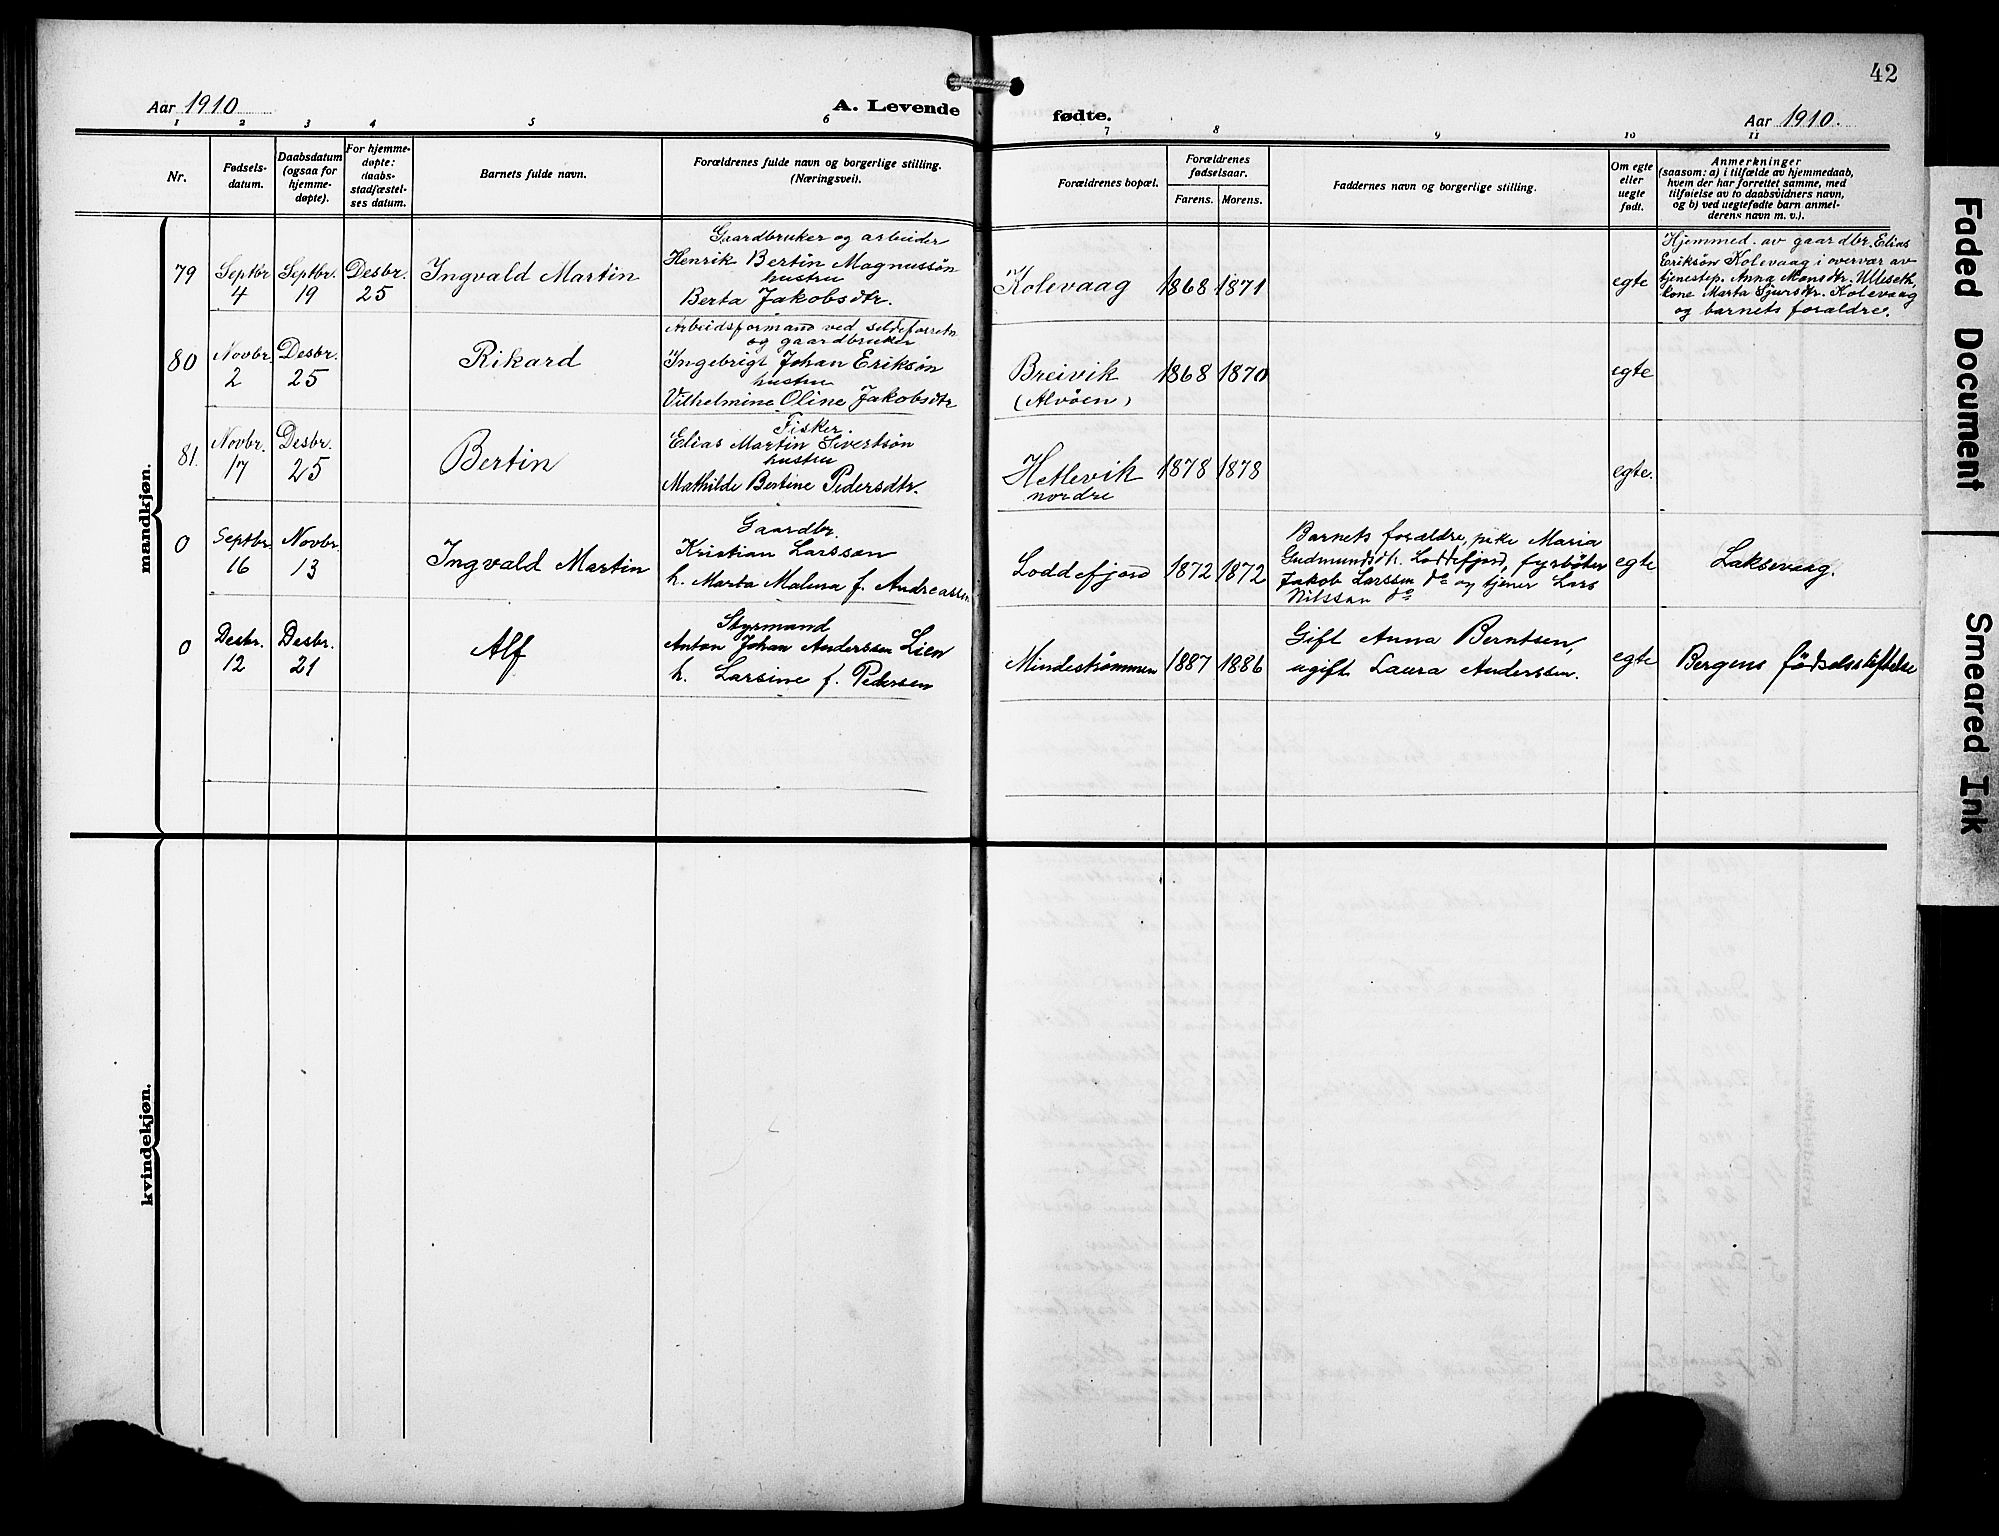 42
Aar 1910
A. Levende
fødte.
Aar 1910.
1 2 3 4 5 6 7 8 9 10 11
Nr.
Fødsels-
datum.
Daabsdatum
(ogsaa for
hjemme-
døpte).
For hjemme-
døpte:
daabs-
stadfæstel-
ses datum.
Barnets fulde navn.
Forældrenes fulde navn og borgerlige stilling.
(Næringsvei).
Forældrenes bopæl.
Forældrenes
fødselsaar.
Farens. Morens.
Faddernes navn og borgerlige stilling.
Om egte
eller
uegte
født.
Anmerkninger
(saasom: a) i tilfælde av hjemmedaab,
hvem der har forrettet samme, med
tilføielse av to daabsvidners navn,
og b) ved uegtefødte barn anmel-
derens navn m. v.).
mandkjøn.
79
Septbr.
4
Septbr.
19
Desbr.
25
Ingvald Martin
Gaardbruker og arbeider
Henrik Bertin Magnussön
hustru
Berta Jakobsdtr.
Kolevaag
1868 1871
egte
Hjemmed. av gaardbr. Elias
Eriksön Kolevaag i overvær av
tjenestep. Anna Monsdtr. Ulleseth,
kone Marta Sjursdtr. Kolevaag
og barnets forældre.
80
Novbr.
2
Desbr.
25
Rikard
Arbeidsformand ved sildeforretn.
og gaardbruker
Ingebrigt Johan Eriksön
hustru
Vilhelmine Oline Jakobsdtr
Breivik
(Alvöen)
1868 1870
egte
81.
Novbr.
17
Desbr.
25
Bertin
Fisker.
Elias Martin Sivertsön
hustru
Mathilde Bertine Pedersdtr.
Hetlevik
nordre
1878 1878
egte.
0
Septbr.
16
Novbr.
13
Ingvald Martin
Gaardbr.
Kristian Larssen
h. Marta Malena f. Andreassen
Loddefjord
1872 1872
Barnets forældre, pike Maria
Gudmundsdtr. Loddefjord, fyrböter
Jakob Larssen do og tjener Lars
Nilssen do
egte
Laksevaag.
0
Desbr.
12
Desbr.
21
Alf
Styrmand
Anton Johan Anderssen Lien
h. Larsine f. Pedersen
Mindeströmmen
1887 1886
Gift Anna Berntsen,
ugift Laura Anderssen.
egte
Bergens födselsstiftelse
kvindekjøn.
Faded Document
Smeared Ink